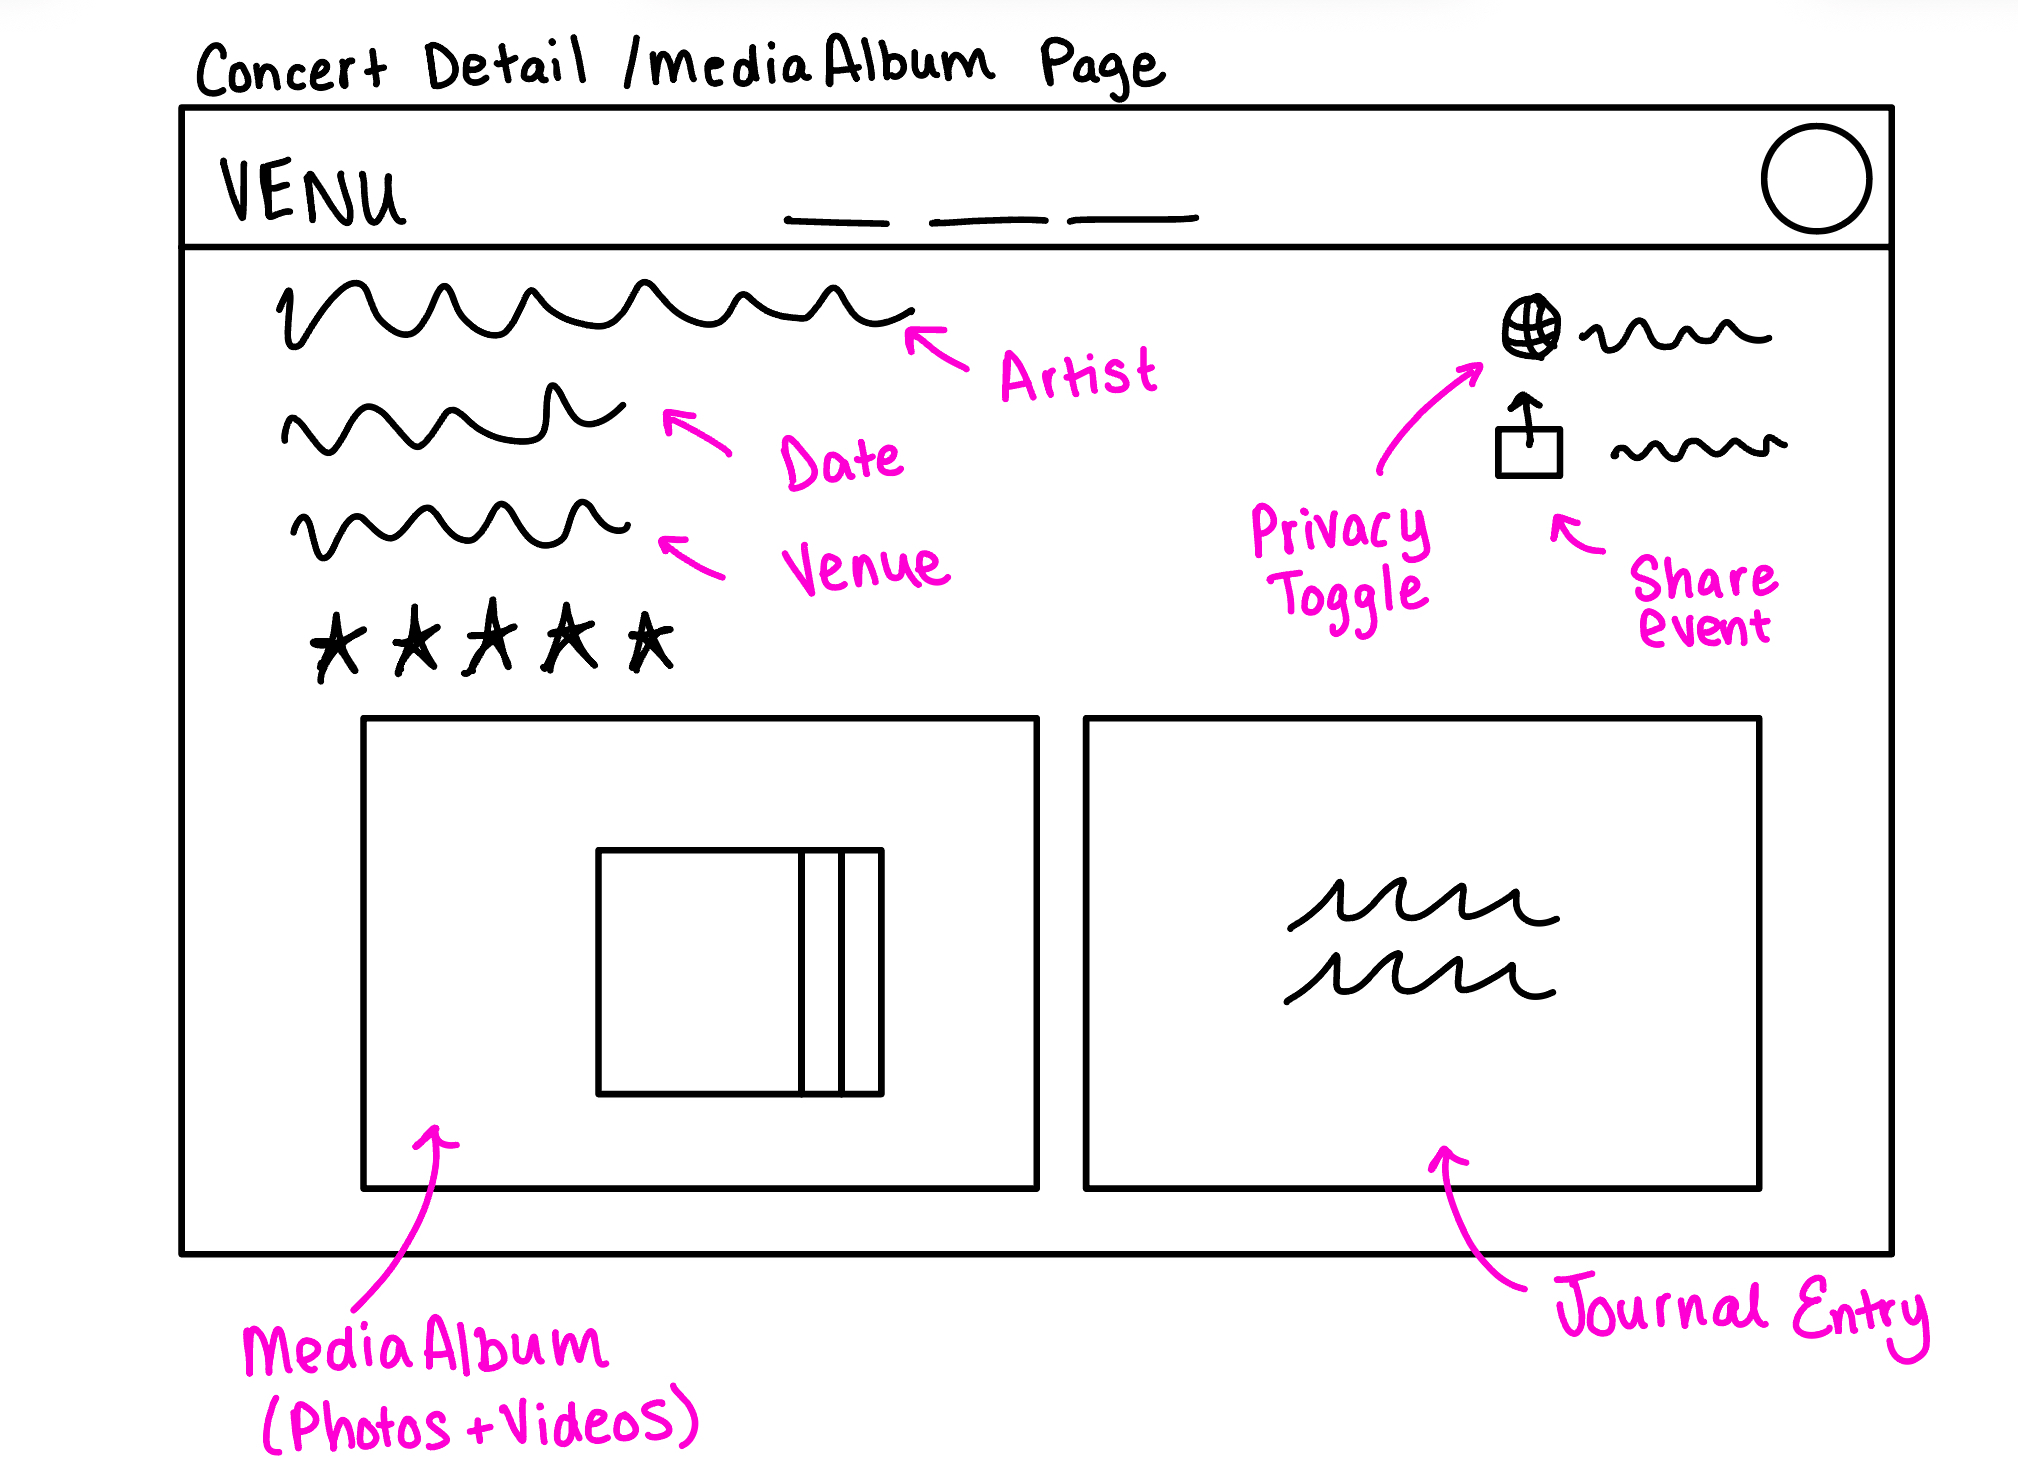 Concert Detail /mediaAlbum Page
VENU
Artist
Date
Venue
Privacy
Toggle
Share
event
MediaAlbum
(Photos + Videos)
Journal Entry